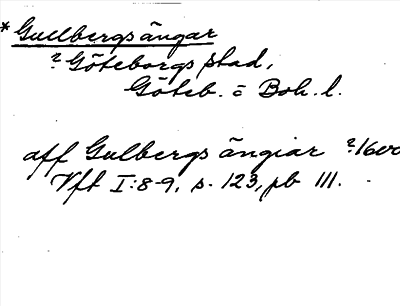 *Gullbergsängar
? Göteborgs stad,
Göteb. o Boh. l.
aff Gulbergs ängiar ?1600
Vft I:8-9, s. 123, pb 111.